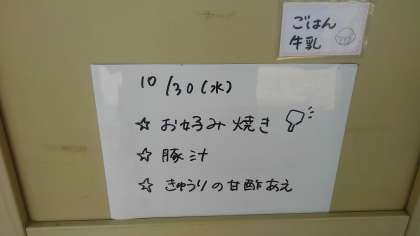 ごはん
牛乳
10/30(水)
☆ お好み焼き
☆ 豚汁
☆ きゅうりの甘酢あえ